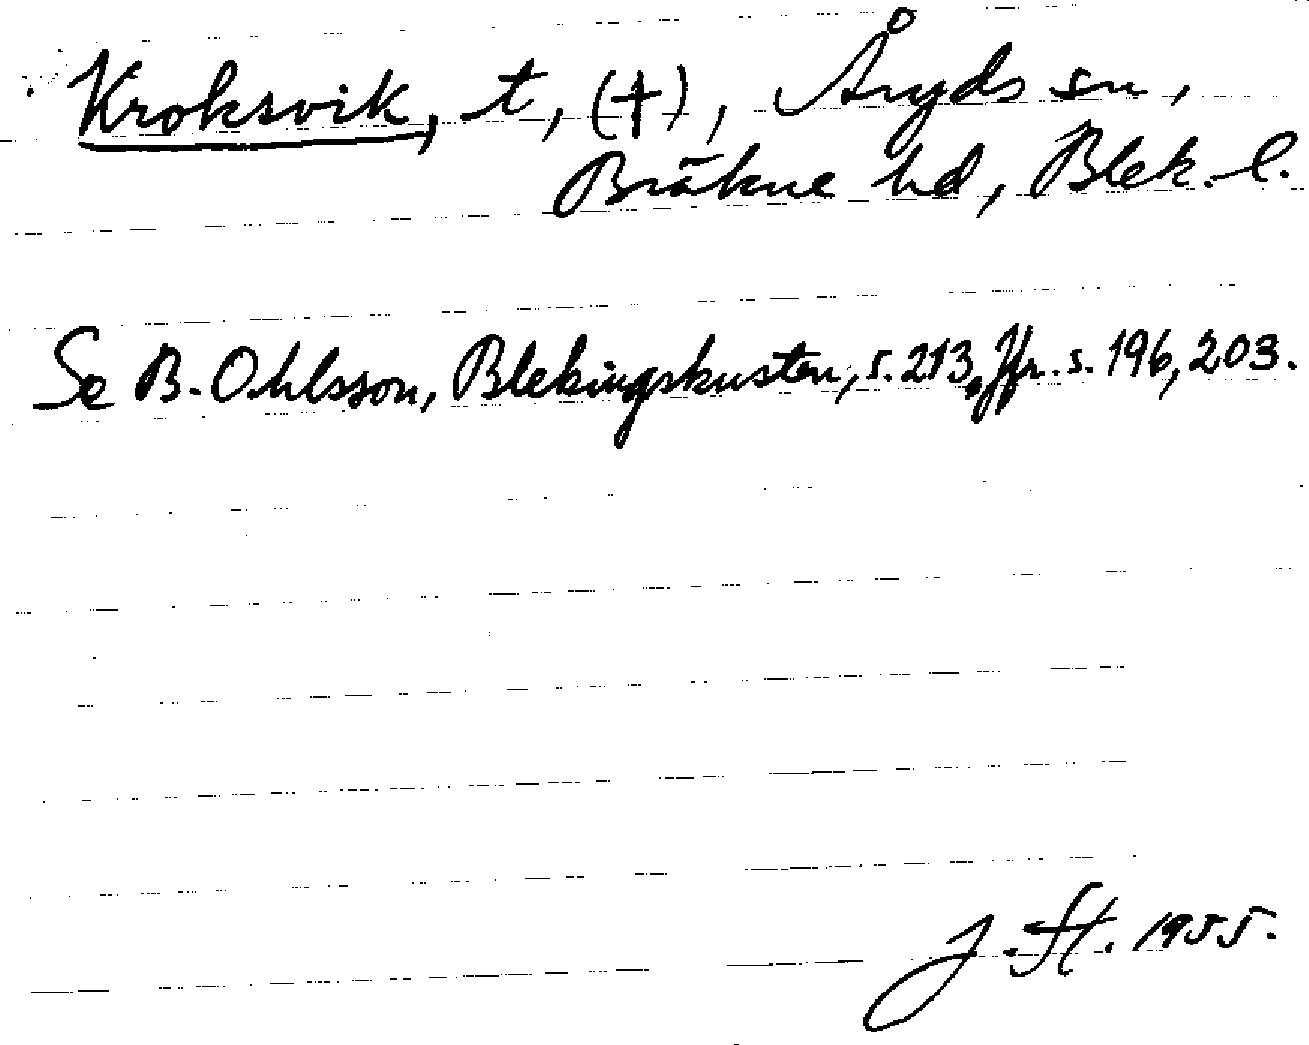 Kroksvik, t, (†), Åryds sn,
Bräkne hd, Blek. l.
Se B. Ohlsson, Blekingskusten, s. 213, Jfr. s. 196, 203.
J. St. 1955.